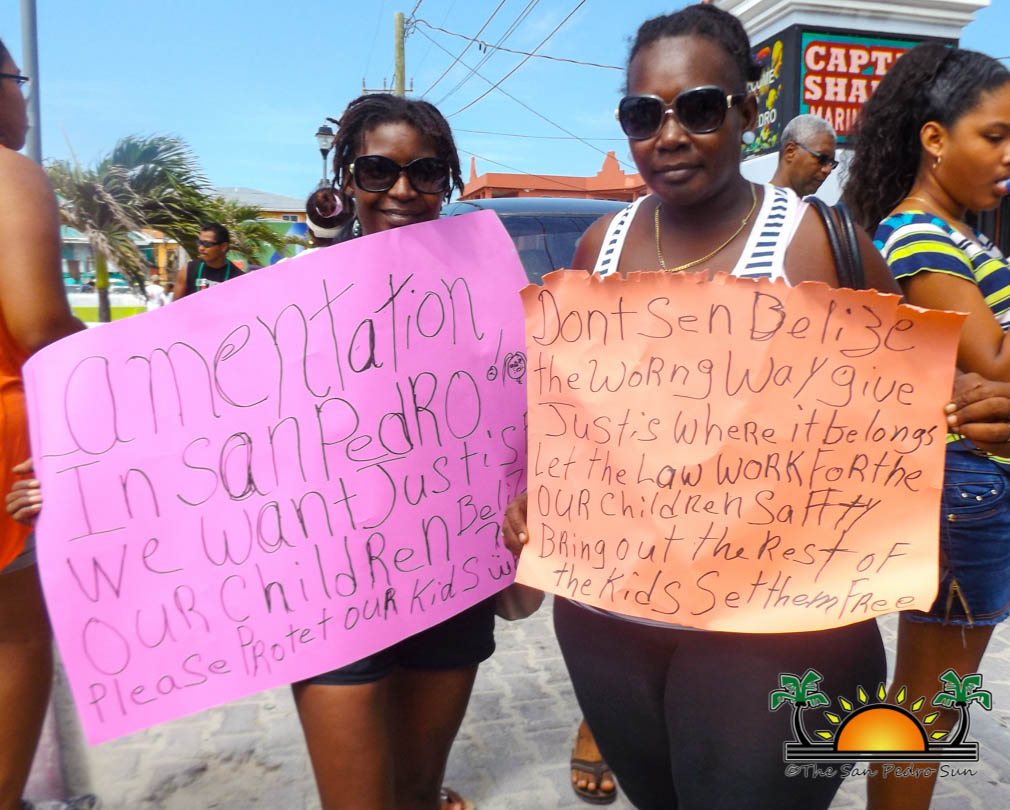 Lamentation
In San Pedro
we want Justis
OUR Children Beliz
Please Protet OUR Kids
Dont Sen Belize
the WORng Way give
Justis Where it belongs
Let the Law WORK FOR the
OUR Children Saffty
Bring out the Rest of
the Kids Set them Free
CAPT
SHA
MARIN
DRO
©The San Pedro Sun